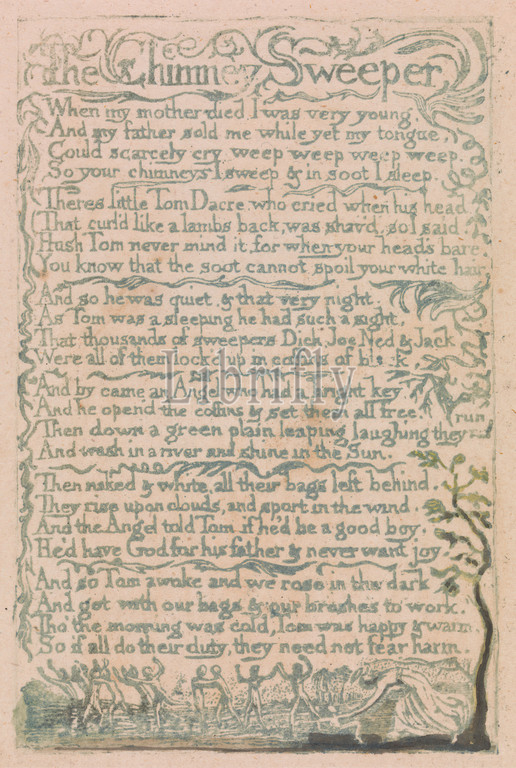 The Chimney Sweeper
When my mother died I was very young,
And my father sold me while yet my tongue,
Could scarcely cry weep weep weep weep.
So your chimneys I sweep & in soot I sleep.
Theres little Tom Dacre, who cried when his head
That curl'd like a lambs back, was shav'd, so I said.
Hush Tom never mind it, for when your head's bare,
You know that the soot cannot spoil your white hair
And so he was quiet, & that very night,
As Tom was a sleeping he had such a sight,
That thousands of sweepers Dick, Joe, Ned & Jack
Were all of them lock'd up in coffins of black
Librifly
And by came an Angel who had a bright key
And he open'd the coffins & set them all free.
Then down a green plain leaping laughing they run
And wash in a river and shine in the Sun.
Then naked & white, all their bags left behind,
They rise upon clouds, and sport in the wind.
And the Angel told Tom, if he'd be a good boy,
He'd have God for his father & never want joy.
And so Tom awoke and we rose in the dark
And got with our bags & our brushes to work.
Tho' the morning was cold, Tom was happy & warm.
So if all do their duty, they need not fear harm.